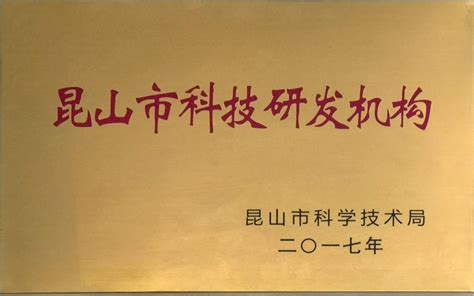 昆山市科技研发机构
昆山市科学技术局
二〇一七年